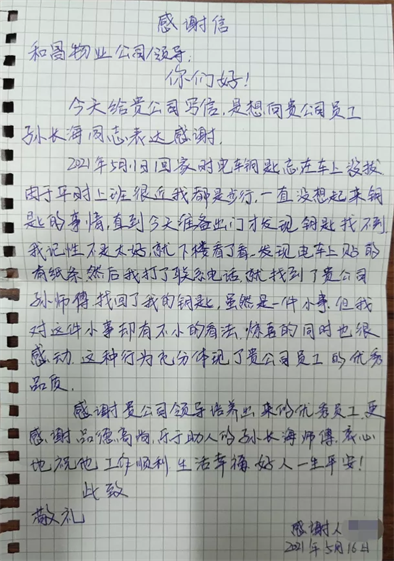 感谢信
和昌物业公司领导.
你们好!
今天给贵公司写信,是想向贵公司员工
孙长海同志表达感谢.
2021年5月1日回家时电车钥匙忘在车上没拔
由于平时上班很近我都是步行,一直没想起来钥
匙的事情,直到今天准备出门才发现钥匙找不到
我记性不是太好,就下楼看了看,发现电车上贴的
有纸条然后我打了联系电话,就找到了贵公司
孙师傅找回了我的钥匙,虽然是一件小事.但我
对这件小事却有不小的看法,惊喜的同时也很
感动.这种行为充分体现了贵公司员工的优秀
品质.
感谢贵公司领导培养出来的优秀员工,更
感谢品德高尚,乐于助人的孙长海师傅,衷心
地祝他工作顺利生活幸福好人一生平安!
此致
敬礼
感谢人
2021年5月16日